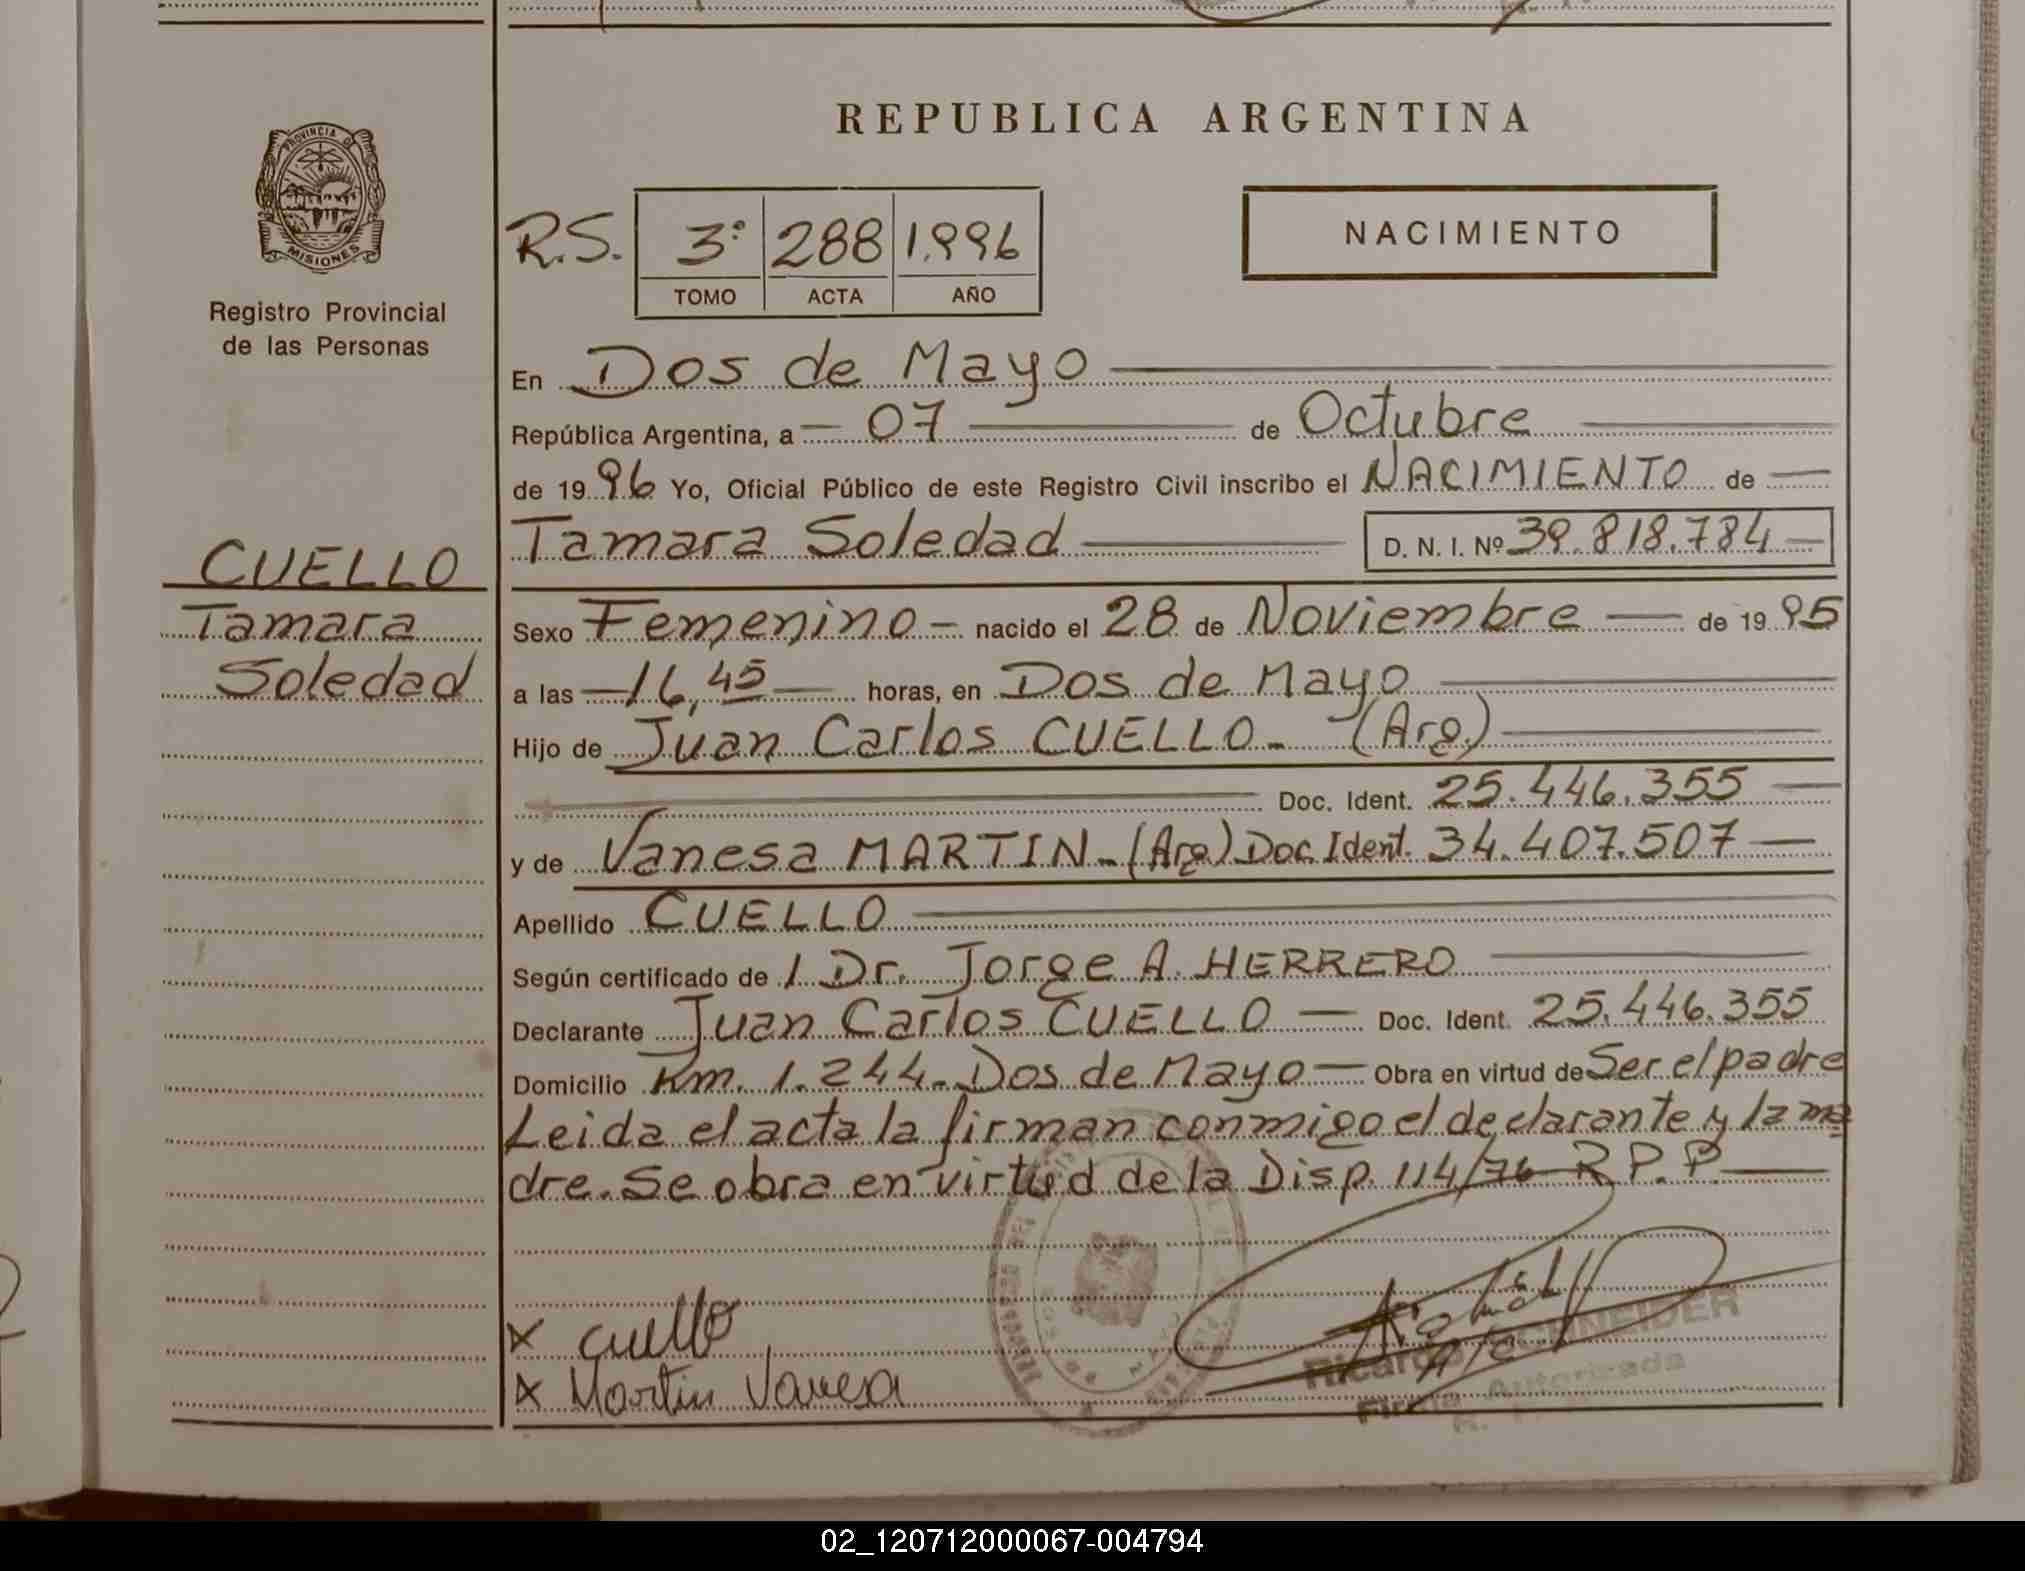 REPUBLICA ARGENTINA
PROVINCIA D
MISIONES
Registro Provincial
de las Personas
R.S. 3º 288 1.996
TOMO ACTA AÑO
NACIMIENTO
En Dos de Mayo
República Argentina, a 07 de Octubre
de 1996 Yo, Oficial Público de este Registro Civil inscribo el NACIMIENTO de
Tamara Soledad D. N. I. Nº 39.818.784
CUELLO
Tamara
Soledad
Sexo Femenino nacido el 28 de Noviembre de 1995
a las 16,45 horas, en Dos de Mayo
Hijo de Juan Carlos CUELLO (Arg.)
Doc. Ident. 25.446.355
y de Vanesa MARTIN (Arg) Doc Ident. 34.407.507
Apellido CUELLO
Según certificado de 1 Dr. Jorge A. HERRERO
Declarante Juan Carlos CUELLO Doc. Ident. 25.446.355
Domicilio Km. 1.244 Dos de Mayo Obra en virtud de Ser el padre
Leida el acta la firman conmigo el declarante y la ma
dre. Se obra en virtud de la Disp. 114/76 R.P.P.
x Cuello
x Martin Vanesa
Ricardo SCHNEIDER
Firma Autorizada
02_120712000067-004794